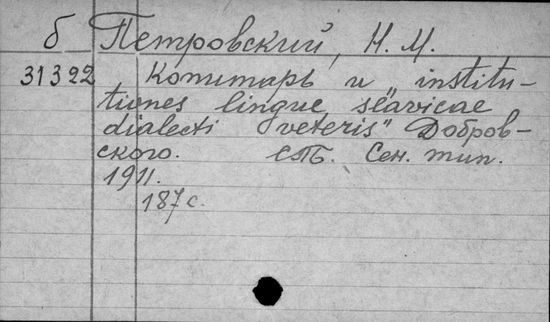 б Петровский, Н. М.
31392 Копитарь и „institu-
tiones lingue slavicae
dialecti veteris" Добров-
ского. СПБ. Сен. тип.
1911.
187 с.